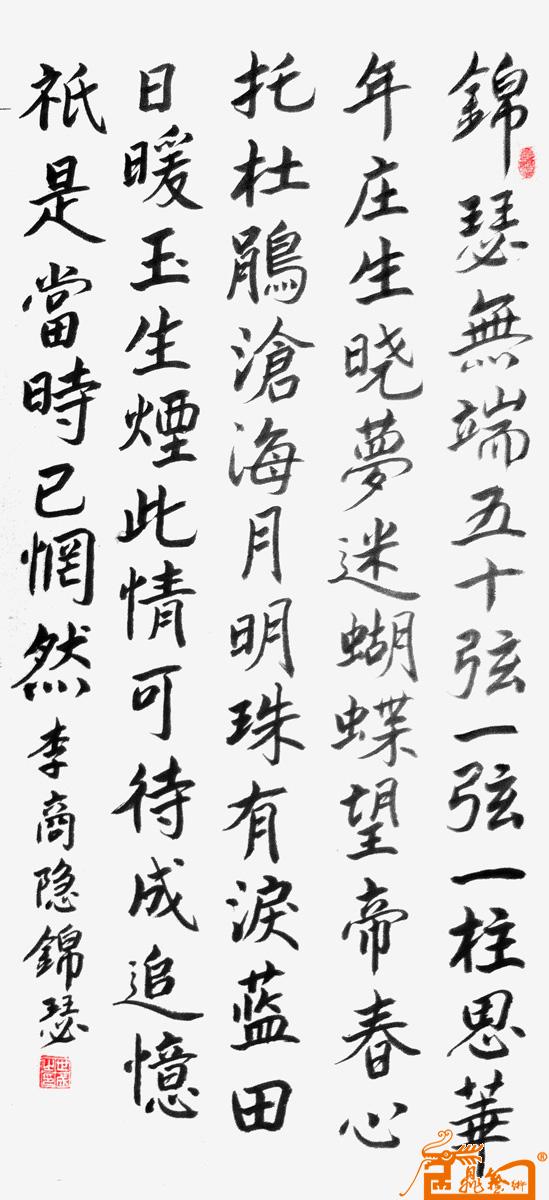 錦瑟無端五十弦一弦一柱思華
年庄生晓夢迷蝴蝶望帝春心
托杜鵑滄海月明珠有淚蓝田
日暖玉生煙此情可待成追憶
祇是當時已惘然李商隐錦瑟